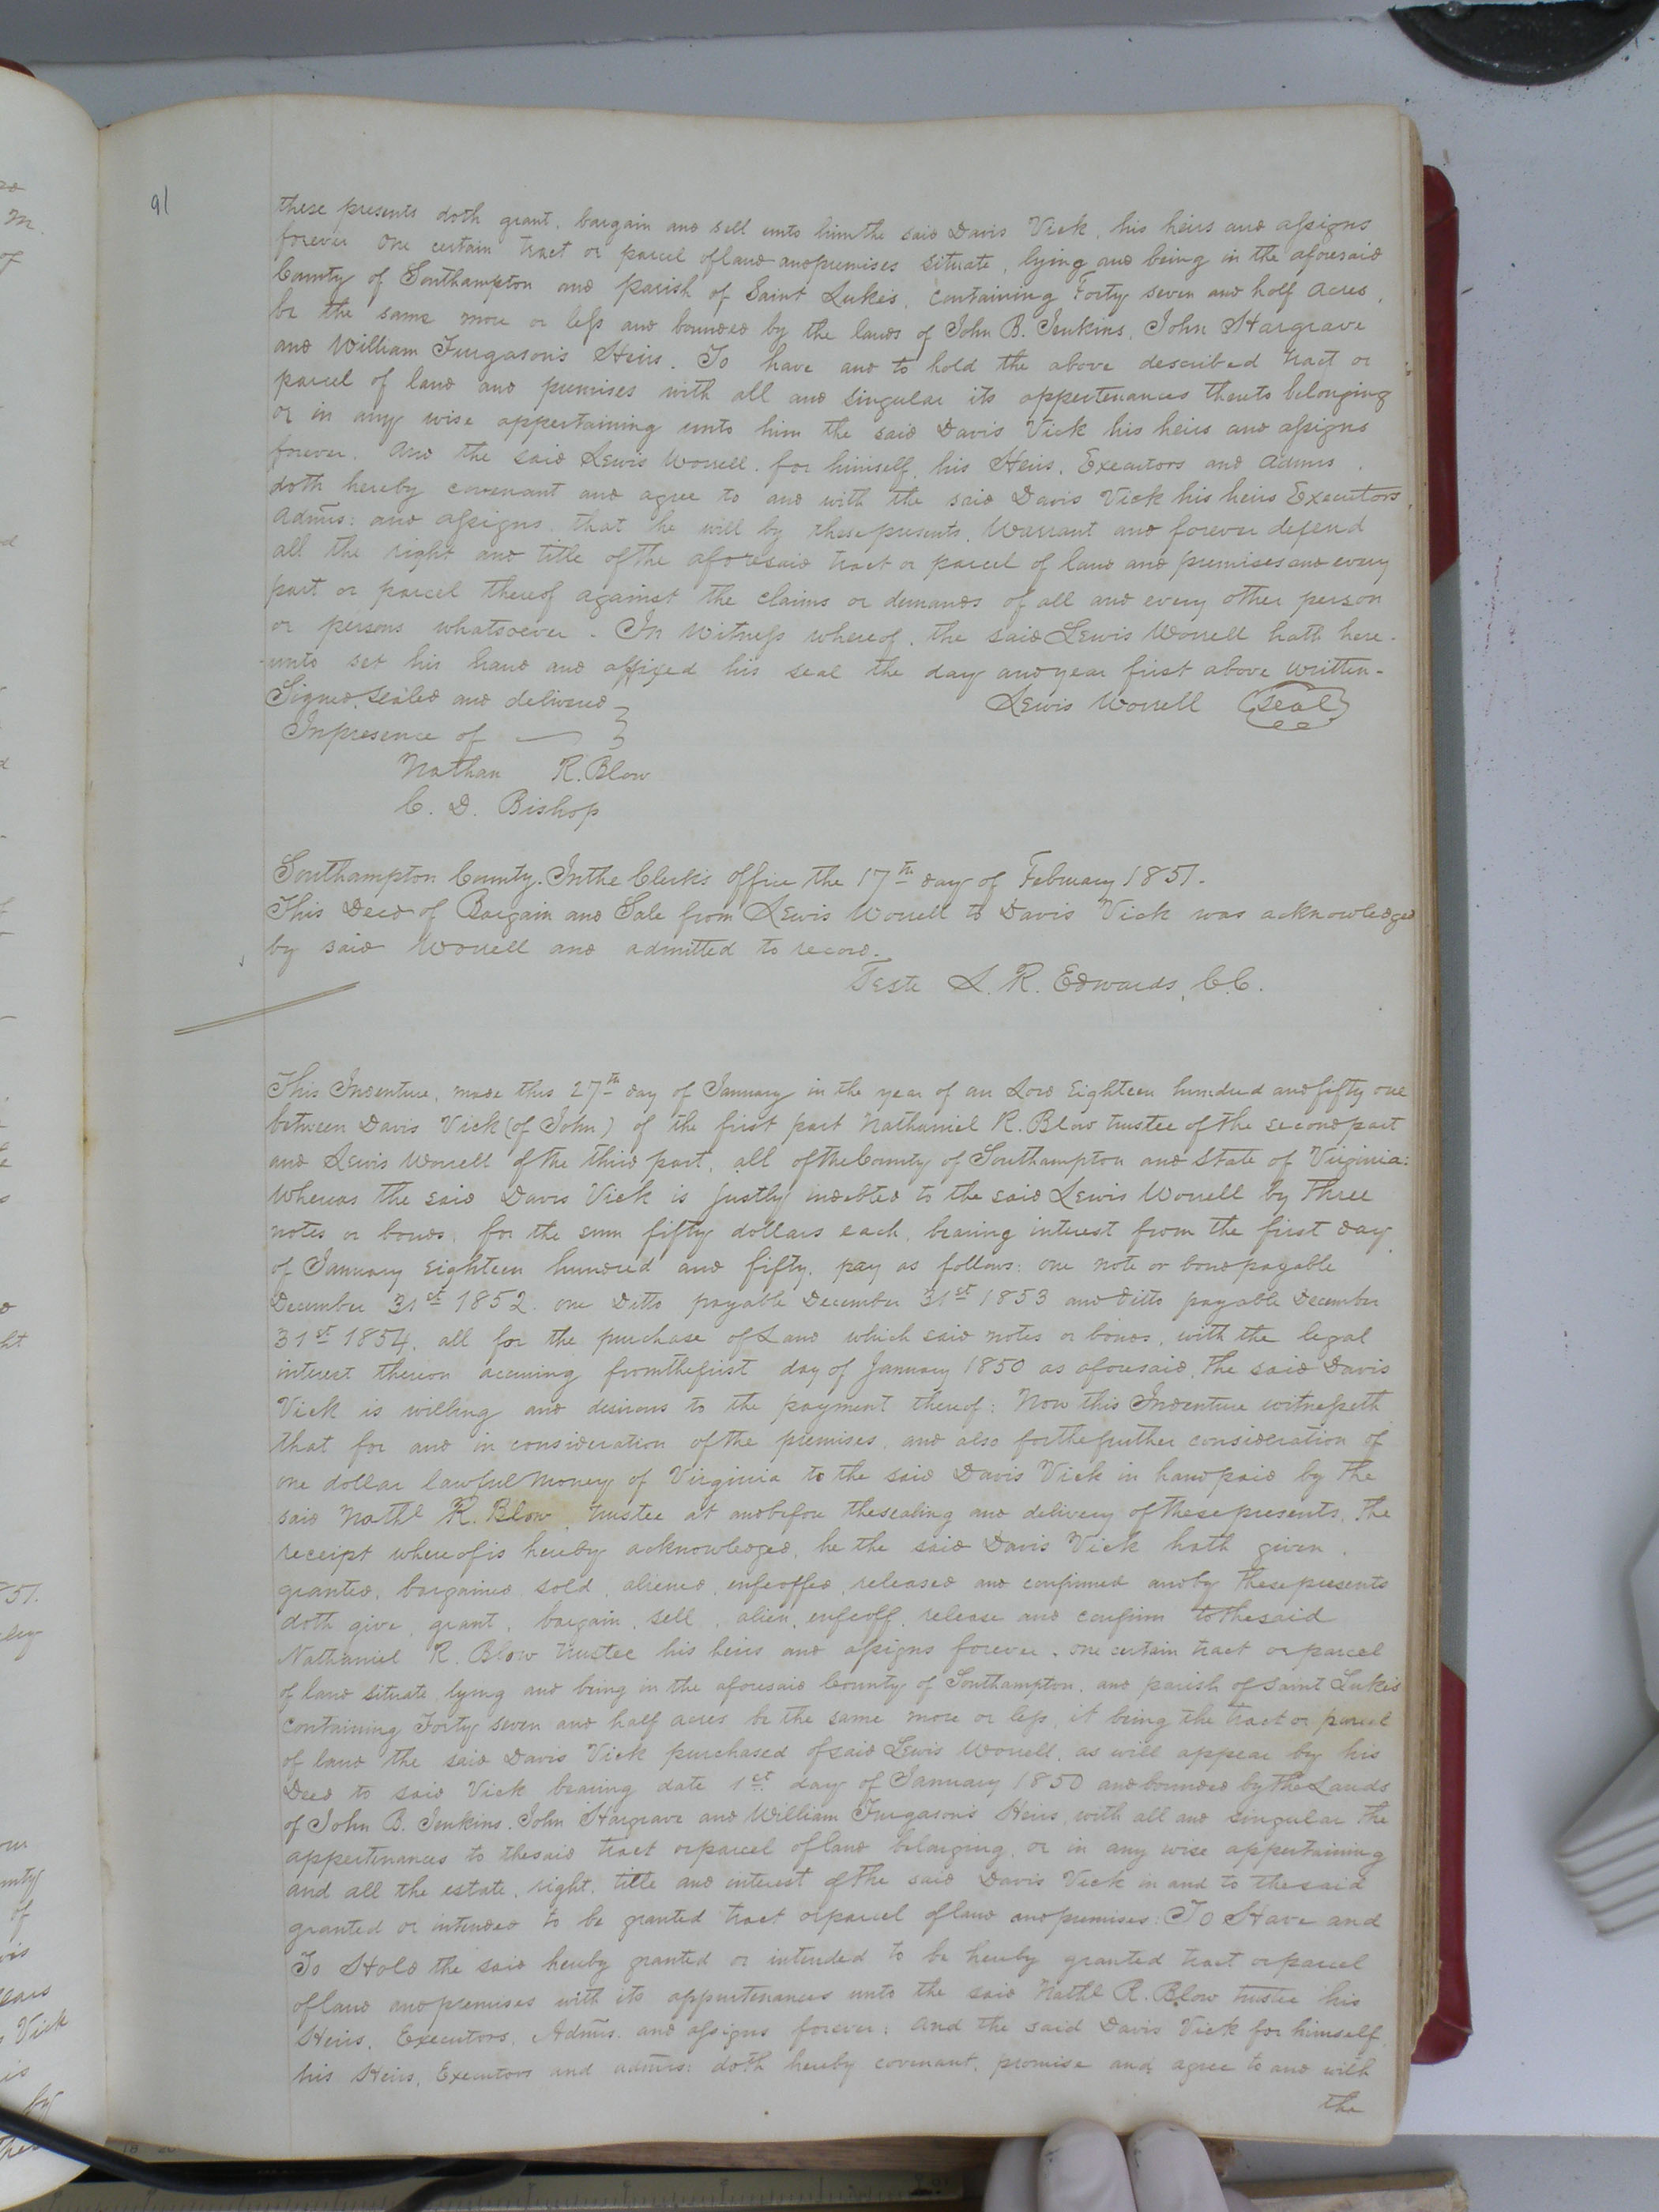 91
these presents doth grant, bargain and sell unto him the said Davis Vick, his heirs and assigns
forever One certain tract or parcel of land and premises situate, lying and being in the aforesaid
County of Southampton and parish of Saint Luke's, containing Forty seven and half acres,
be the same more or less and bounded by the lands of John B. Jenkins, John Hargrave
and William Furgason's Heirs. To have and to hold the above described tract or
parcel of land and premises with all and singular its appertenances thereto belonging
or in any wise appertaining unto him the said Davis Vick his heirs and assigns
forever. And the said Lewis Worrell, for himself, his Heirs, Executors and Admrs,
doth hereby covenant and agree to and with the said Davis Vick his heirs Executors,
Admrs: and assigns, that he will by these presents, Warrant and forever defend
all the right and title of the aforesaid tract or parcel of land and premises and every
part or parcel thereof against the claims or demands of all and every other person
or persons whatsoever. In Witness whereof, the said Lewis Worrell hath here-
-unto set his hand and affixed his seal the day and year first above written-
Signed, sealed and delivered } Lewis Worrell (Seal)
In presence of — }
Nathan R. Blow
C. D. Bishop
Southampton County. In the Clerk's office the 17th day of February 1851.
This Deed of Bargain and Sale from Lewis Worrell to Davis Vick was acknowledged
by said Worrell and admitted to record.
Teste L. R. Edwards, C.C.
This Indenture, made this 27th day of January in the year of our Lord Eighteen hundred and fifty one
between Davis Vick (of John) of the first part Nathaniel R. Blow trustee of the second part
and Lewis Worrell of the third part, all of the County of Southampton and State of Virginia:
Whereas the said Davis Vick is justly indebted to the said Lewis Worrell by three
notes or bonds, for the sum fifty dollars each, bearing interest from the first day
of January eighteen hundred and fifty, pay as follows: one note or bond payable
December 31st 1852. one Ditto payable December 31st 1853 and Ditto payable December
31st 1854, all for the purchase of Land which said notes or bonds, with the legal
interest thereon accruing from the first day of January 1850 as aforesaid, the said Davis
Vick is willing and desirous to the payment thereof: Now this Indenture witnesseth
that for and in consideration of the premises, and also for the further consideration of
one dollar lawful money of Virginia to the said Davis Vick in hand paid by the
said Nathl R. Blow, trustee at and before the sealing and delivery of these presents, the
receipt whereof is hereby acknowledged, he the said Davis Vick hath given,
granted, bargained sold, aliened, enfeoffed, released and confirmed and by these presents
doth give, grant, bargain, sell, alien, enfeoff, release and confirm to the said
Nathaniel R. Blow trustee his heirs and assigns forever, one certain tract or parcel
of land situate, lying and being in the aforesaid County of Southampton, and parish of Saint Luke's
containing Forty seven and half acres be the same more or less, it being the tract or parcel
of land the said Davis Vick purchased of said Lewis Worrell, as will appear by his
Deed to said Vick bearing date 1st day of January 1850 and bounded by the Lands
of John B. Jenkins, John Hargrave and William Furgason's Heirs, with all and singular the
appertenances to the said tract or parcel of land belonging, or in any wise appertaining
and all the estate, right, title and interest of the said Davis Vick in and to the said
granted or intended to be granted tract or parcel of land and premises: To Have and
To Hold the said hereby granted or intended to be hereby granted tract or parcel
of land and premises with its appurtenances unto the said Nathl R. Blow trustee his
Heirs, Executors, Admrs. and assigns forever: And the said Davis Vick for himself,
his Heirs, Executors and admrs: doth hereby covenant, promise and agree to and with
the